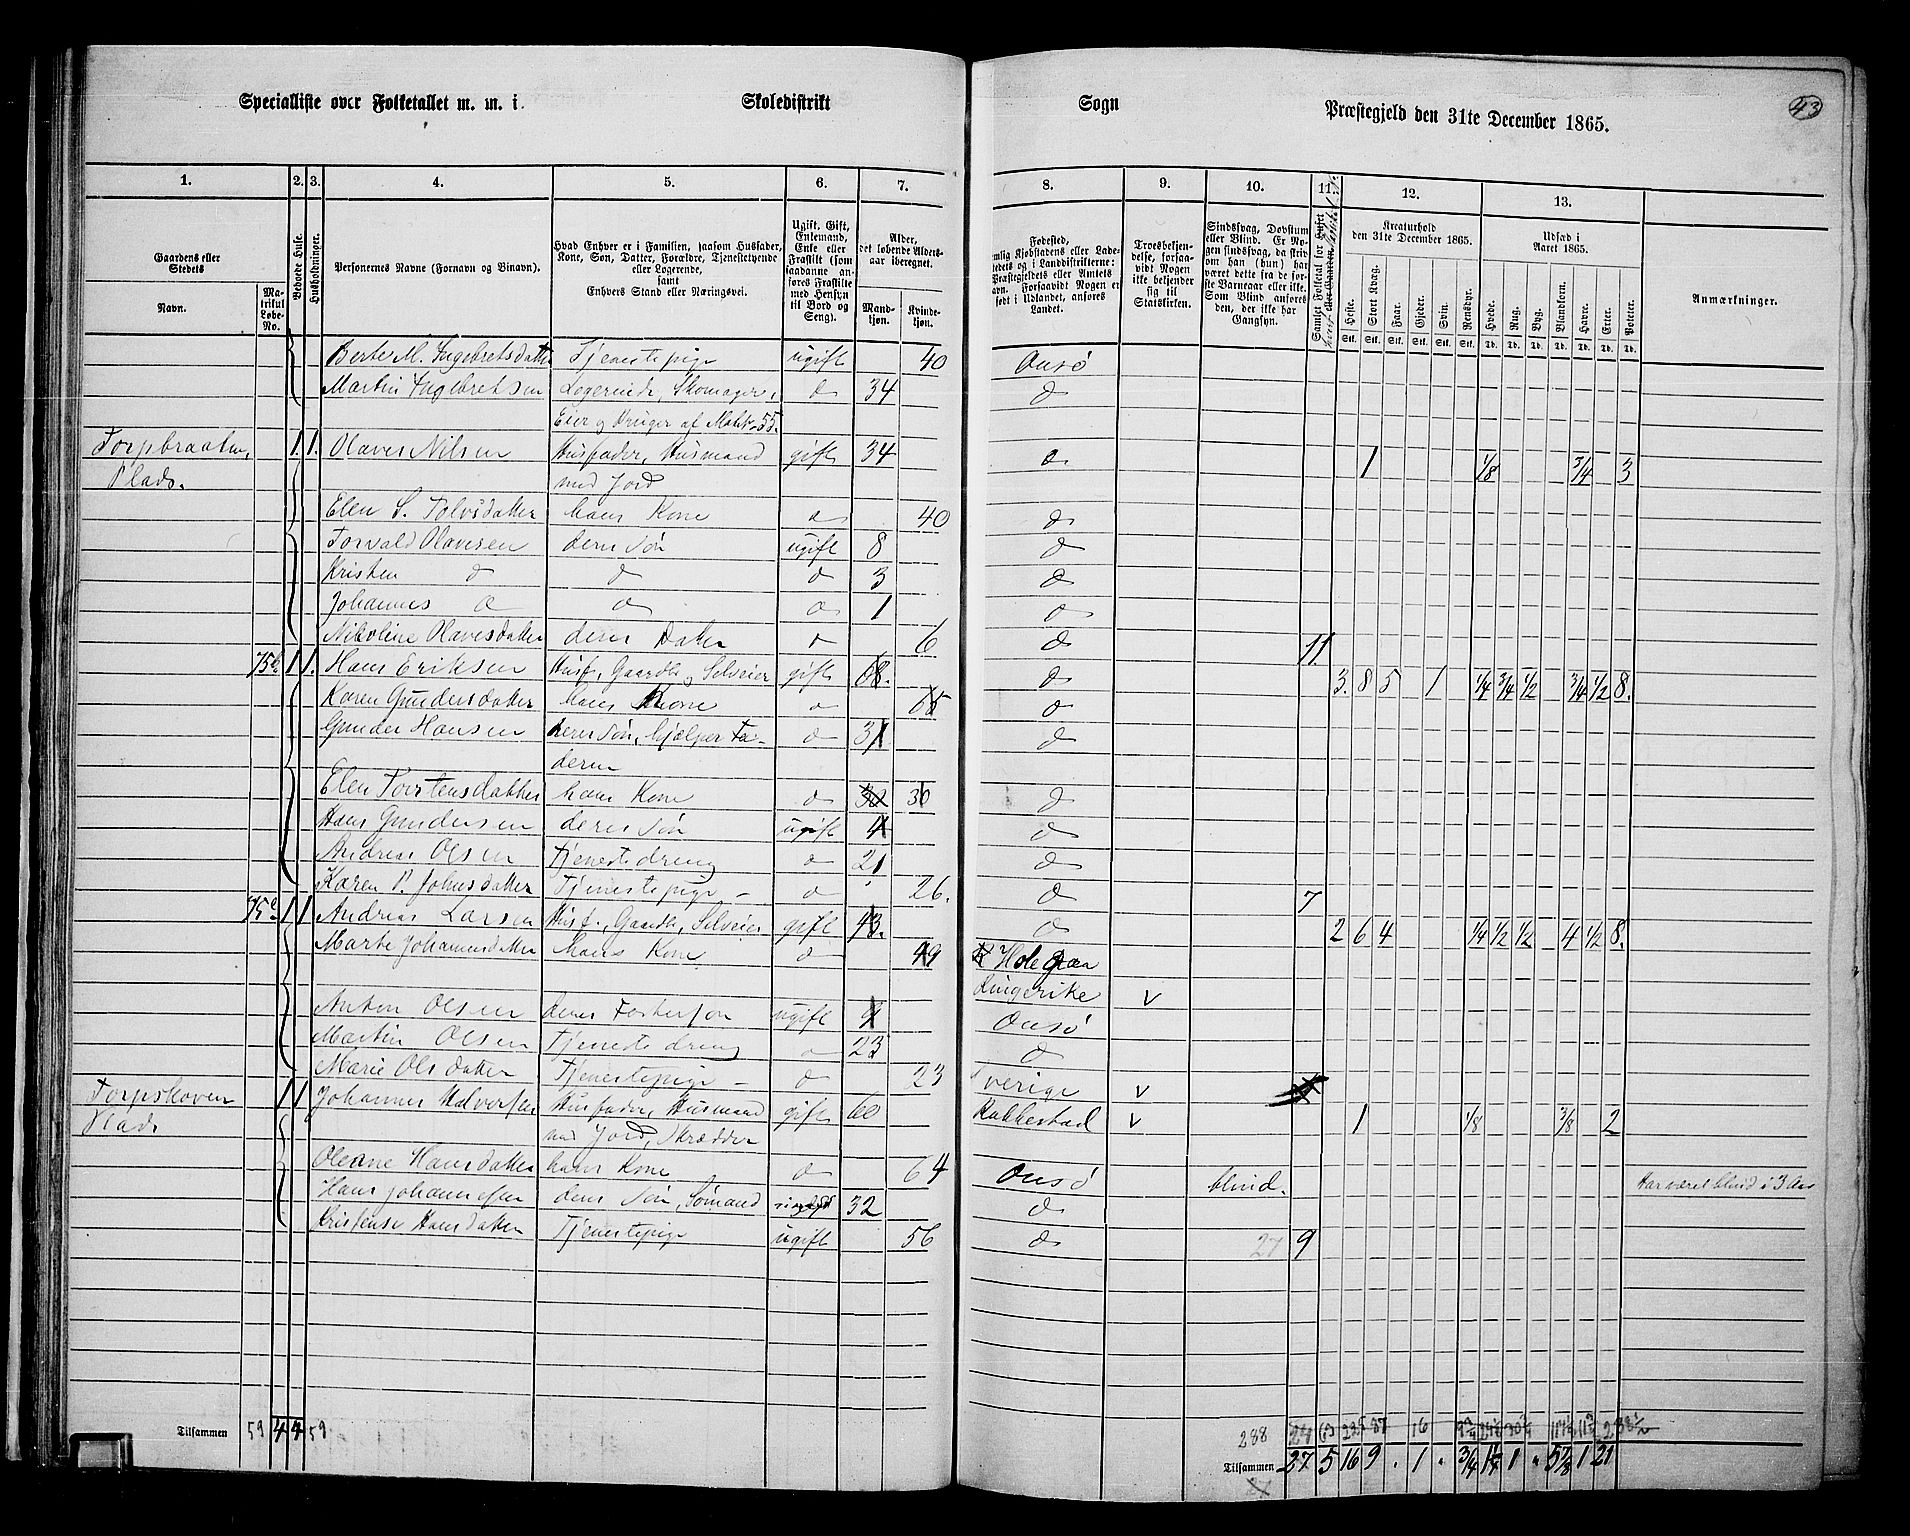 Specialliste over Folketallet m. m. i Skoledistrikt Sogn Præstegjeld den 31te December 1865. 43
1. 2. 3. 4. 5. 6. 7. 8. 9. 10. 11. 12. 13.
Gaardens eller Stedets Navn. Matrikul Løbe-No. Beboede Huse. Husholdninger. Personernes Navne (Fornavn og Binavn).
Hvad Enhver er i Familien, saasom Husfader, Kone, Søn, Datter, Forældre, Tjenestetyende eller Logerende, samt Enhvers Stand eller Næringsvei.
Ugift, Gift, Enkemand, Enke eller Fraskilt (som saadanne anføres Fraskilte med Hensyn til Bord og Seng).
Alder, det løbende Aldersaar iberegnet. Mandkjøn. Kvindekjøn.
Fødested,
Troesbekjendelse, forsaavidt Nogen ikke bekjender sig til Statskirken.
Sindssvag, Døvstum eller Blind.
Kreaturhold den 31te December 1865. Heste. Stort Kvæg. Faar. Gjeder. Svin. Rensdyr.
Udsæd i Aaret 1865. Hvede. Rug. Byg. Blandkorn. Havre. Erter. Poteter.
Anmærkninger.
Berte M. Ingebretsdatter Tjenestepige ugift 40 Onsø
Martin Ingebretsen Logerende, Skomager, d 34 d
Eier og Bruger af Matr. 55.
Torpbraaten, 1. 1. Olaves Nilsen Husfader, Husmand gift 34 d 1 1/8 3/4 3
Plads. med Jord
Elen S. Tolvsdatter hans Kone d 40 d
Torvald Olavesen deres Søn ugift 8 d
Kristen d d d 3 d
Johannes d d d 1 d
Nikoline Olavesdatter deres Datter d 6 d 11.
75b. 1 1. Hans Eriksen Husf., Gaardb. og Selveier gift 68. d 3. 8 5 1 1/4 3/4 1/2 3/4 1/2 8.
Karen Gundersdatter hans Kone d 65 d
Gunder Hansen deres Søn, hjælper Fa- d 31 d
deren
Elen Torstensdatter hans Kone d 30 30 d
Hans Gundersen deres Søn ugift 4 d
Andreas Olsen Tjenestedreng d 21 d
Karen P. Johnsdatter Tjenestepige d 26. d 7
75c 1 1 Andreas Larsen Husf., Gaardb., Selveier gift 43. d 2 6 4 1/4 1/2 1/2 4 1/2 8.
Marte Johannesdatter hans Kone d 49 Hole paa
Ringerike v
Anton Olsen deres Fostersøn ugift 9 Onsø
Martin Olsen Tjenestedreng d 23 d
Marie Olsdatter Tjenestepige d 23 Sverige v
Torpskoven 1 1 Johannes Halvorsen Husfader, Husmand gift 60 Rakkestad v 1 1/8 3/8 2
Plads med Jord, Skrædder
Oleane Hansdatter hans Kone d 64 Onsø blind. Har været blind i 3 Aar
Hans Johannesen deres Søn, Sømand 32 d
Kristense Hansdatter Tjenestepige ugift 56 d 27 9
Tilsammen 59 4 4 59 288
Tilsammen 27 5 16 9 . 1 . 3/4 1 3/4 1 . 5 7/8 1 21